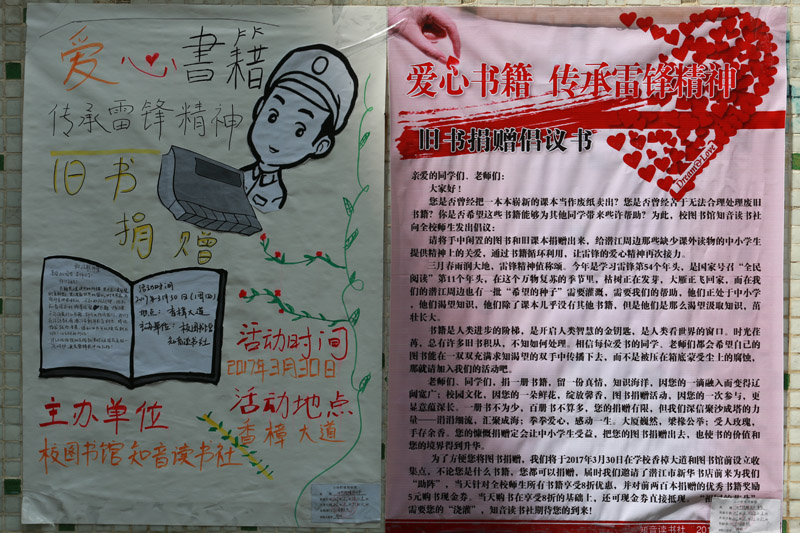 爱心書籍
传承雷锋精神
旧书
捐赠
活动时间
2017年3月30日(周四)
地点:香樟大道
主办单位:校图书馆
知音读书社
活动时间
2017年3月30日
活动地点
香樟大道
主办单位
校图书馆 知音读书社
爱心书籍 传承雷锋精神
旧书捐赠倡议书
Dream&Love
亲爱的同学们、老师们:
大家好!
您是否曾经把一本本崭新的课本当作废纸卖出?您是否曾经苦于无法合理处理废旧
书籍?你是否希望这些书籍能够为其他同学带来些许帮助?为此,校图书馆知音读书社
向全校师生发出倡议:
请将手中闲置的图书和旧课本捐赠出来,给潜江周边那些缺少课外读物的中小学生
提供精神上的关爱,通过书籍循环利用,让雷锋的爱心精神再次接力。
三月春雨润大地,雷锋精神值称颂。今年是学习雷锋第54个年头,是国家号召“全民
阅读”第11个年头,在这个万物复苏的季节里,枯树正在发芽,大雁正飞回家,而在我
们的潜江周边也有一批“希望的种子”需要灌溉,需要我们的帮助,他们正处于中小学
,他们渴望知识,他们除了课本几乎没有其他书籍,但是他们是那么渴望汲取知识,茁
壮长大。
书籍是人类进步的阶梯,是开启人类智慧的金钥匙,是人类看世界的窗口。时光荏
苒,总有许多旧书积从,不知如何处理。相信每位爱书的同学、老师们都会希望自己的
图书能在一双双充满求知渴望的双手中传播下去,而不是被压在箱底蒙受尘土的腐蚀,
那就请加入我们的活动吧。
老师们、同学们,捐一册书籍,留一份真情,知识海洋,因您的一滴融入而变得辽
阔宽广;校园文化,因您的一朵鲜花,绽放馨香,图书捐赠活动,因您的一次参与,更
显意蕴深长。一册书不为少,百册书不算多,您的捐赠有限,但我们深信聚沙成塔的力
量——涓涓细流,汇聚成海;拳拳爱心,感动一生。大厦巍然,梁椽公举;受人玫瑰,
手存余香。您的慷慨捐赠定会让中小学生受益,把您的图书捐赠出去,也使书的价值和
您的境界得到升华。
为了方便您将图书捐赠,我们将于2017年3月30日在学校香樟大道和图书馆前设立收
集点,不论您是什么书籍,您都可以捐赠,届时我们邀请了潜江市新华书店前来为我们
“助阵”,当天针对全校师生所有书籍享受8折优惠,并对前两百本捐赠的优秀书籍奖励
5元购书现金券。当天购书在享受8折的基础上,还可现金券直接抵现。
需要您的“浇灌”,知音读书社期待您的到来!
知音读书社